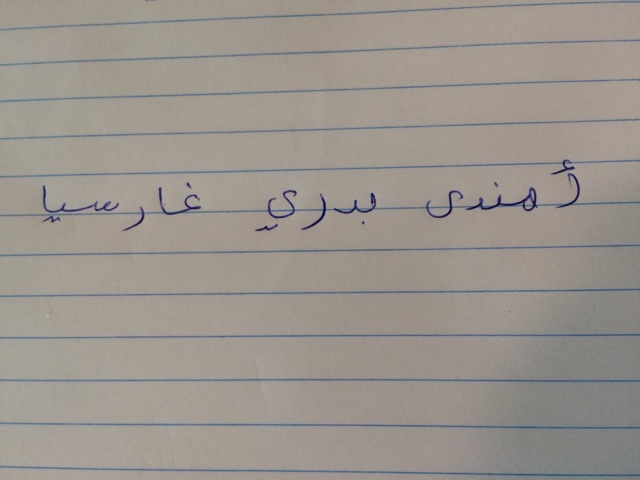 أمندى بدري غارسيا